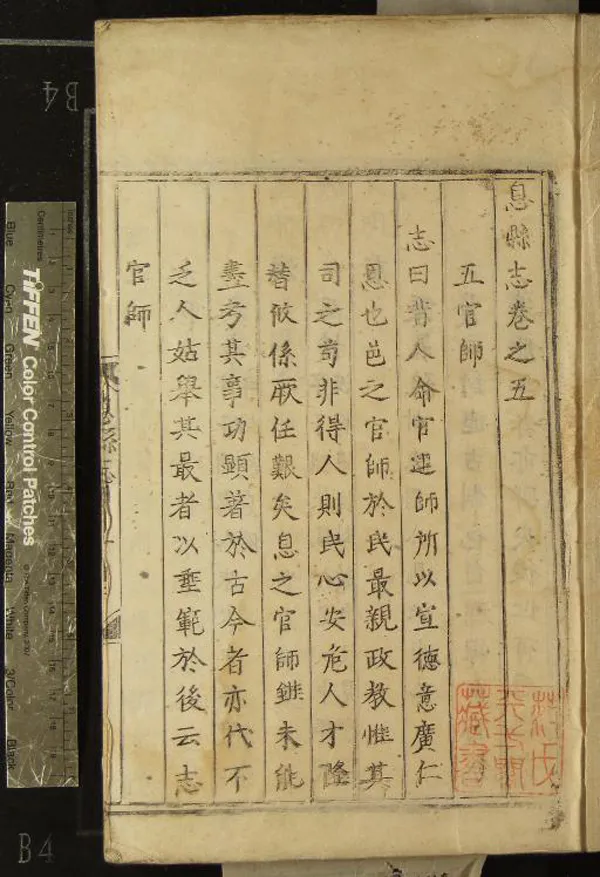 息縣志卷之五
五官師
志曰昔人命官建師所以宣德意廣仁
恩也邑之官師於民最親政教惟其
司之苟非得人則民心安危人才隆
替攸係厥任艱矣息之官師雖未能
盡考其事功顯著於古今者亦代不
乏人姑舉其最者以垂範於後云志
官師
息縣志
B4
B4
Centimetres
TIFFEN Color Control Patches
Blue
Cyan
Green
Yellow
Red
Magenta
White
3/Color
Black